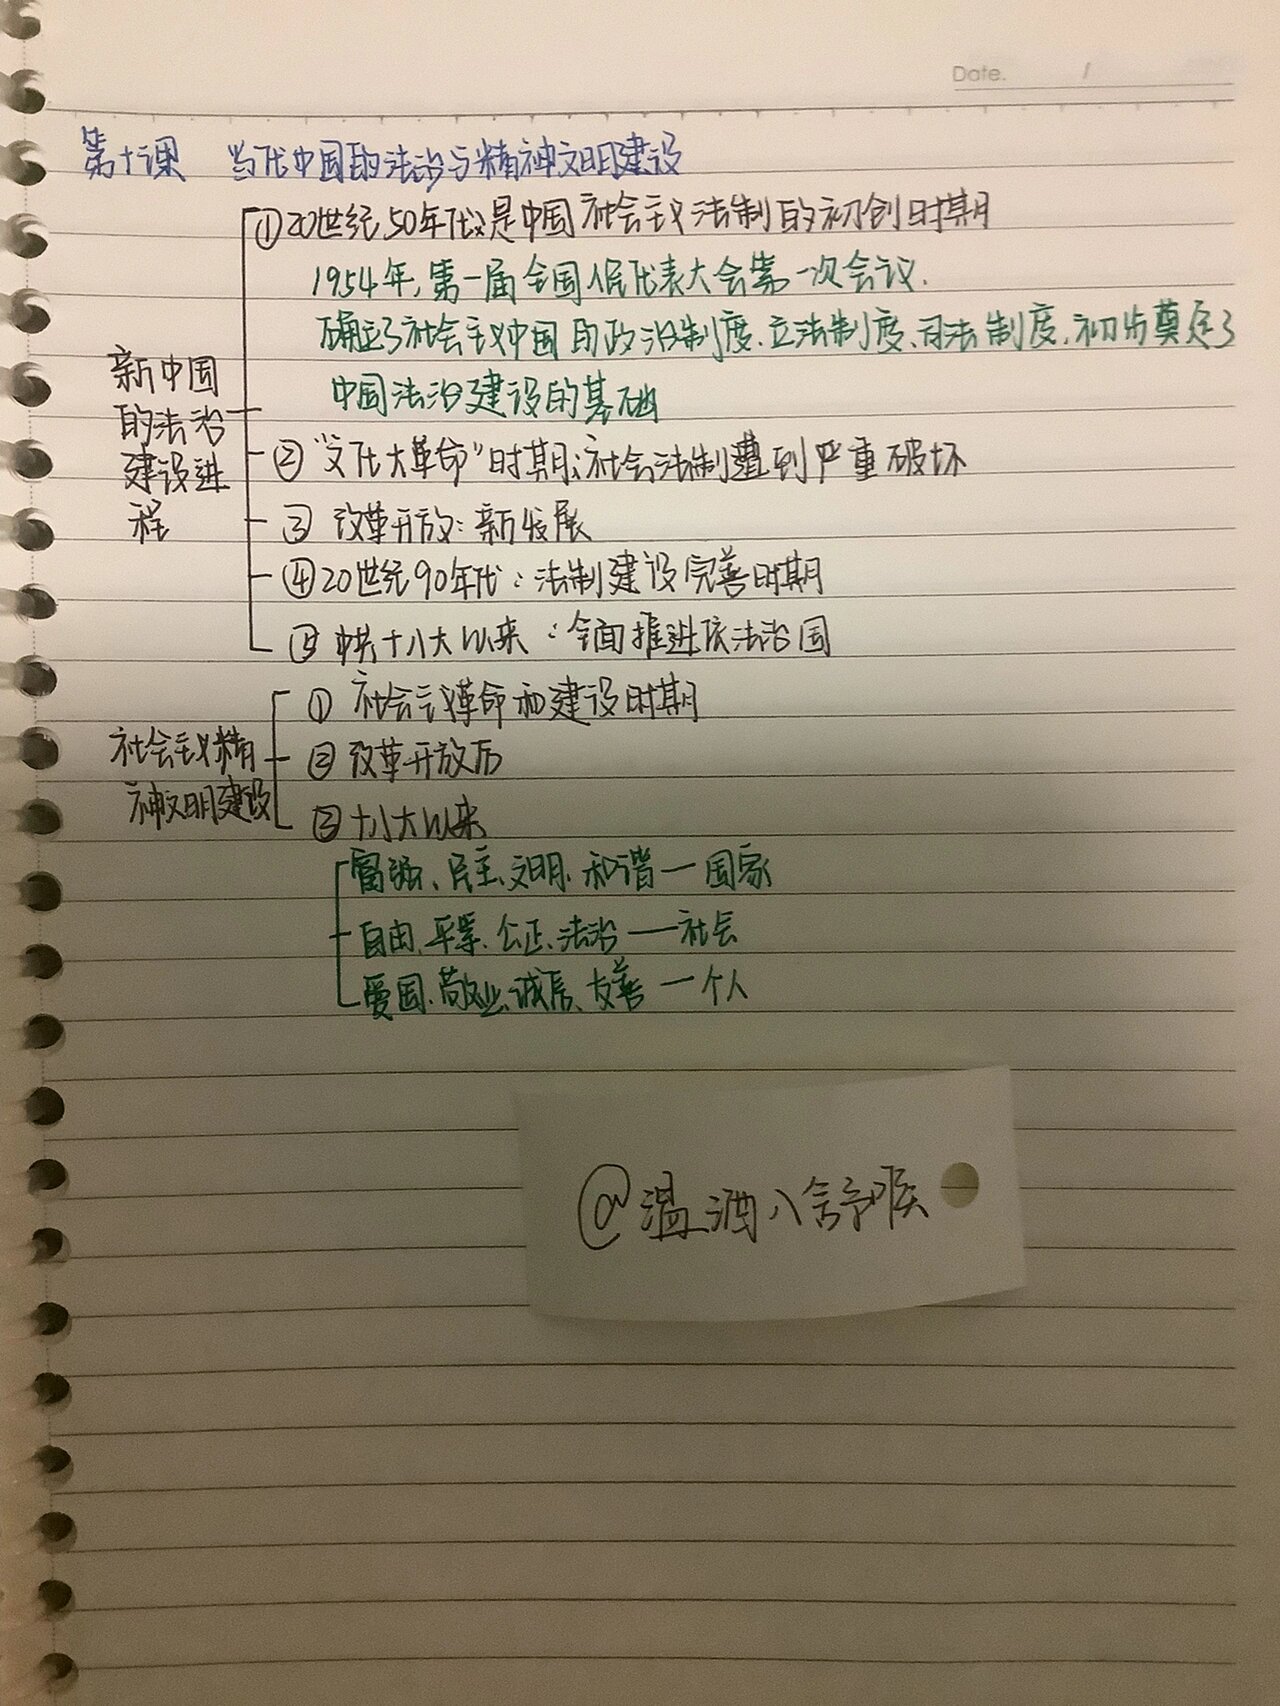 Date. /
第十课 当代中国的法治与精神文明建设
①20世纪50年代是中国社会主义法制的初创时期
1954年,第一届全国人民代表大会第一次会议.
确立了社会主义中国的政治制度、立法制度、司法制度,初步奠定了
中国法治建设的基础
新中国
的法治
建设进
程
②"文化大革命"时期:社会法制遭到严重破坏
③ 改革开放:新发展
④20世纪90年代:法制建设完善时期
⑤ 中共十八大以来:全面推进依法治国
社会主义精
神文明建设
① 社会主义革命和建设时期
② 改革开放后
③ 十八大以来
富强、民主、文明、和谐—国家
自由、平等、公正、法治——社会
爱国、敬业、诚信、友善—个人
@温酒八舒喉